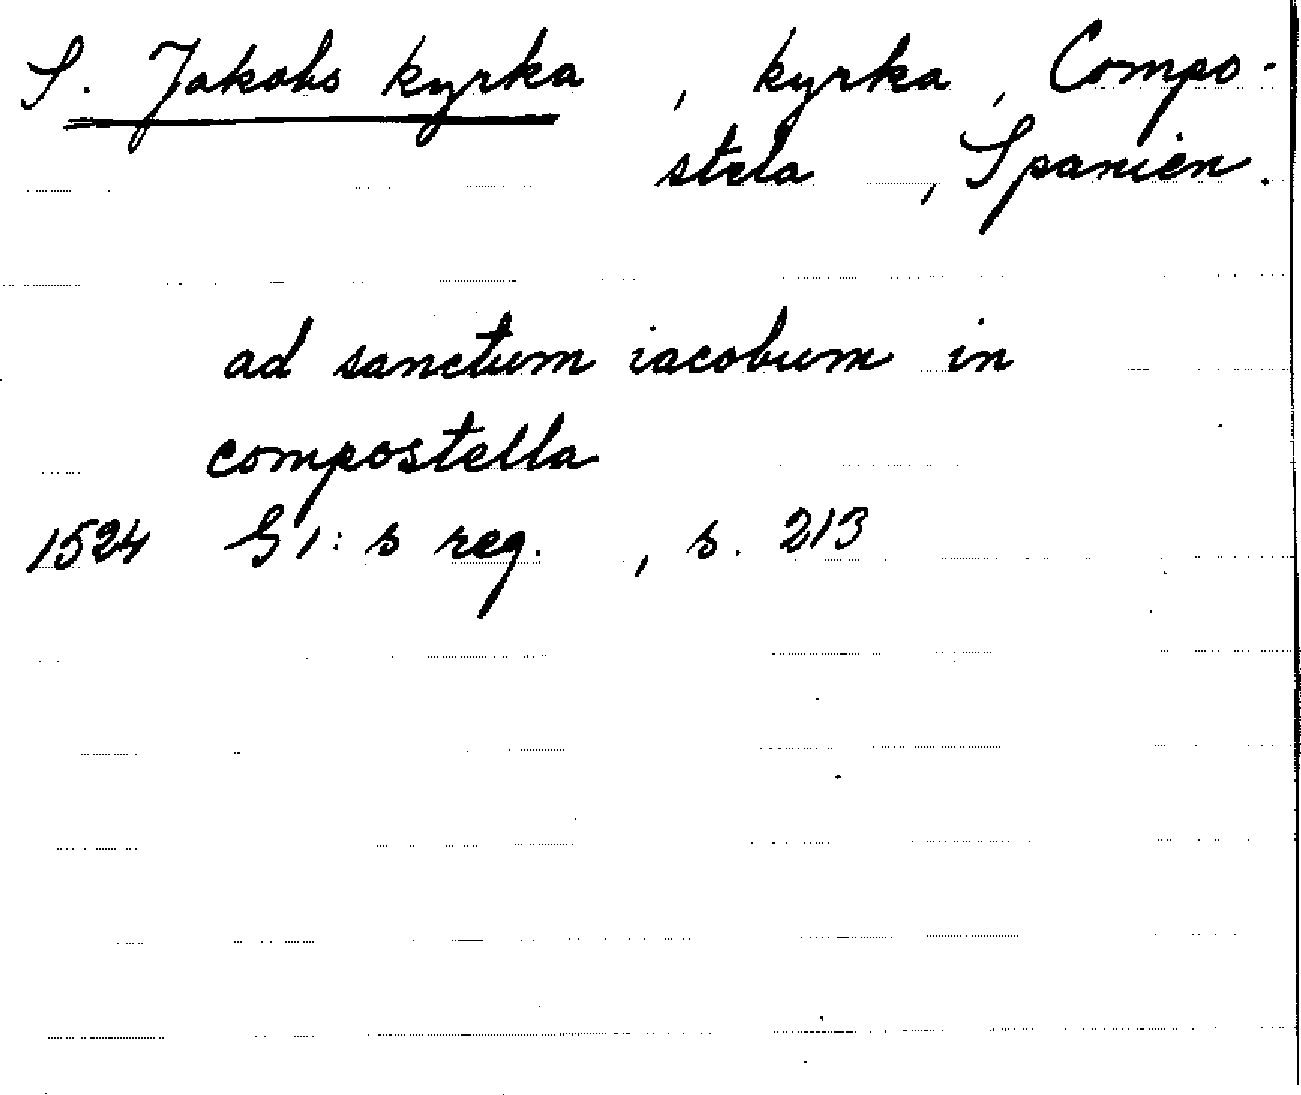 S. Jakobs kyrka, kyrka, Compo-
stela, Spanien.
ad sanctum iacobum in
compostella
1524 G1:s reg., s. 213